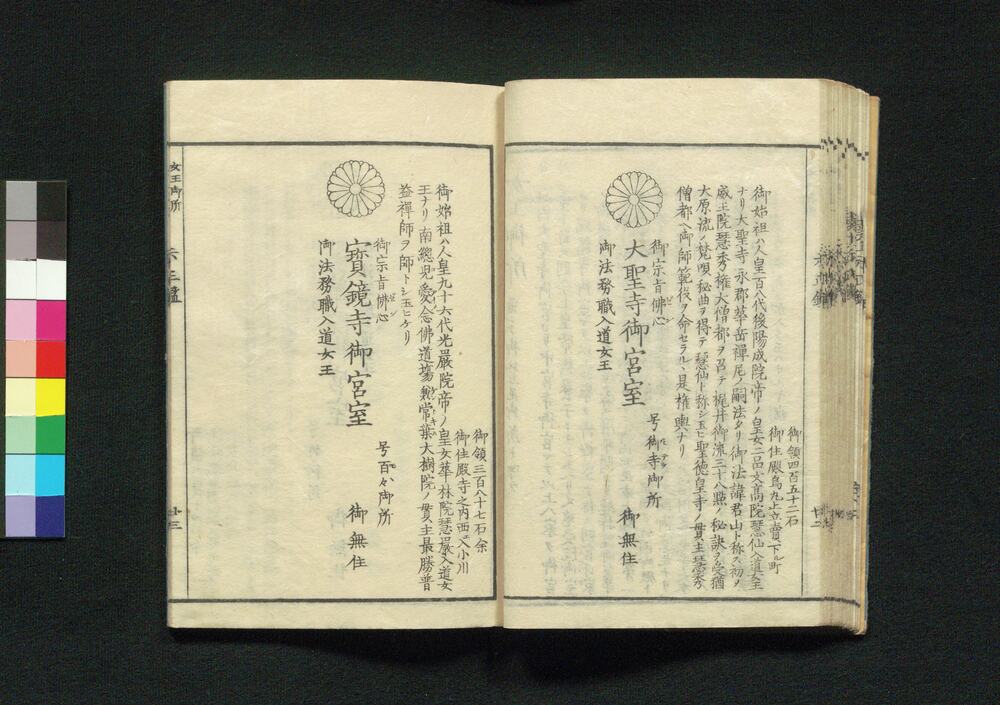 御領四百五十二石
御住殿烏丸上立賣下ル町
御始祖ハ人皇一百八代後陽成院帝ノ皇女二品文高院慧仙入道女王
ナリ大聖寺永郡華岳禪尼ノ嗣法タリ御法諱君山ト称ス初メ
威王院慧秀權大僧都ヲ召テ梶井御流三十八點ノ秘訣ヲ受猶
大原流ノ梵唄秘曲ヲ得テ慧仙ト称シ玉ヒ聖德皇寺ノ貫主慧秀
僧都へ御師範役ノ命セラル、是権輿ナリ
御宗旨佛心
大聖寺御宮室
号御寺御所
御無住
御法務職入道女王
廿二
御領三百八十七石余
御住殿寺之内西エ入小川
御始祖ハ人皇九十六代光嚴院帝ノ皇女華林院慧嚴入道女
王ナリ南總児愛念佛道場無常葉大樹院ノ貫主最勝普
益禪師ヲ師トシ玉ヒケリ
御宗旨佛心
寳鏡寺御宮室
号百々御所
御無住
御法務職入道女王
女王御所
廿三